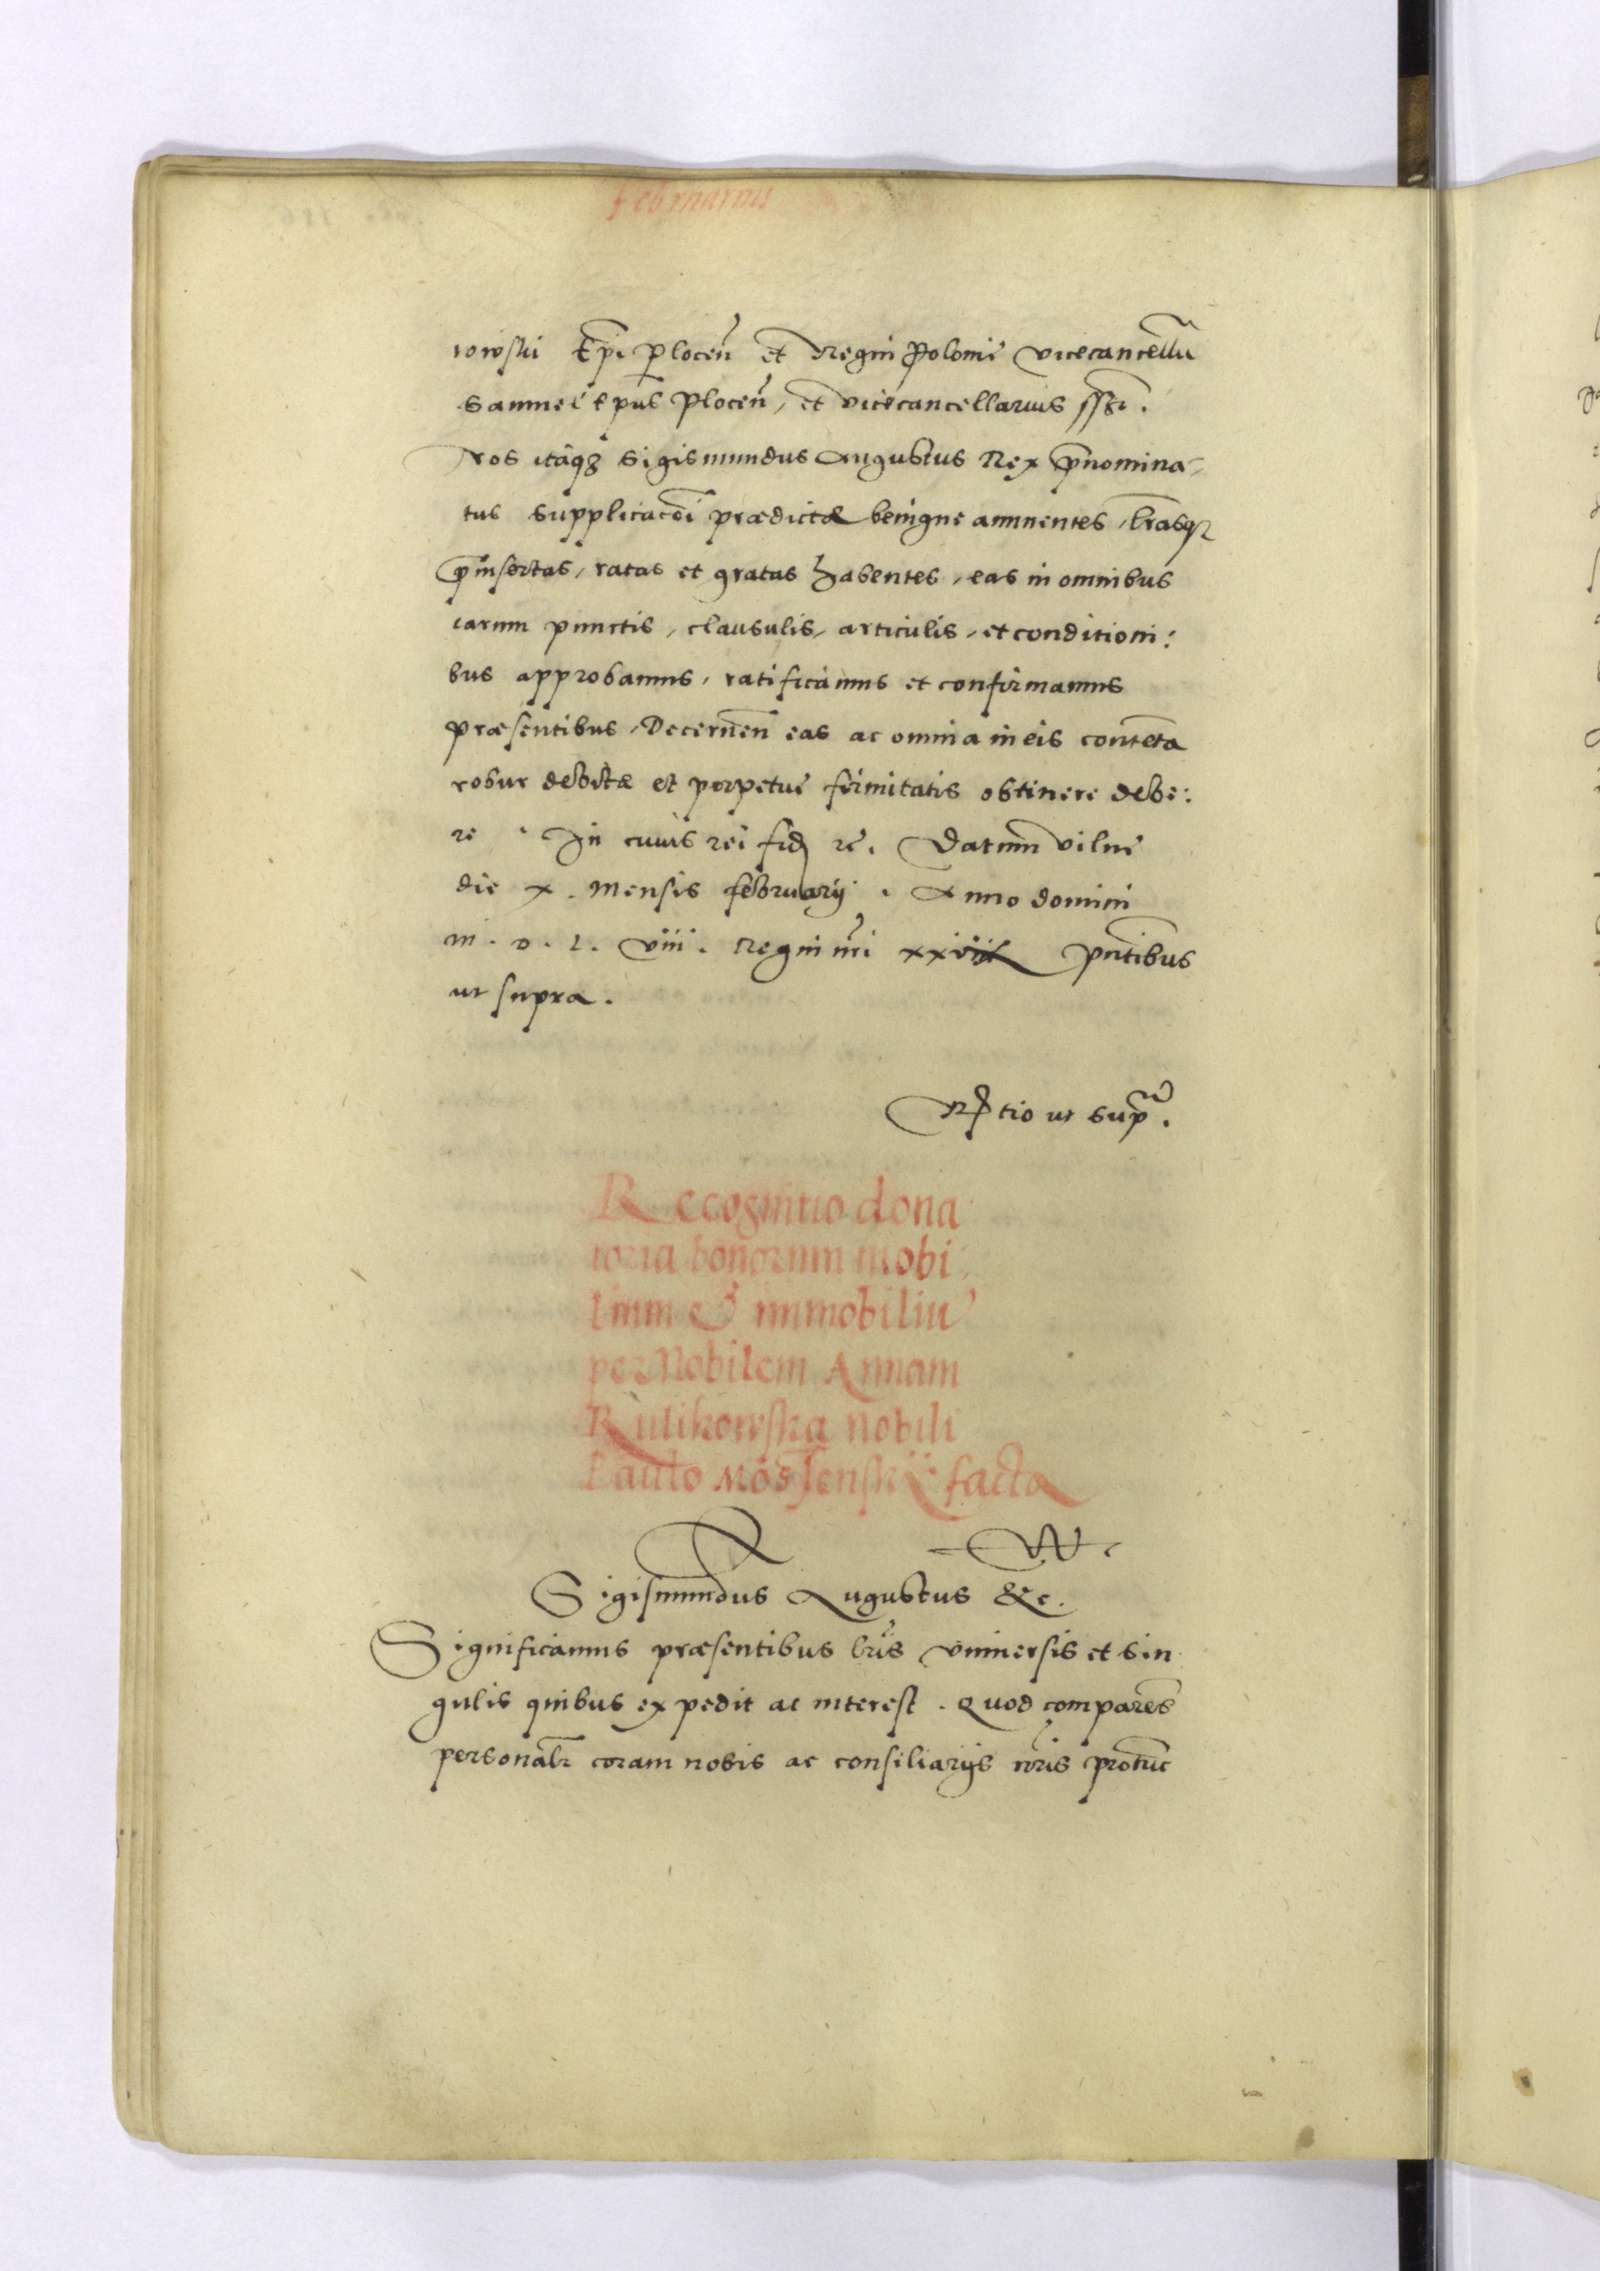 Februarius
iowski Epi Plocen et Regni Polonie vicecancellarii
Samuel Epus Plocen, et vicecancellarius sst.
Nos itaqz Sigismundus Augustus Rex prenomina-
tus supplicacoi prædictæ benigne annuentes, lrasqz
preinsertas, ratas et gratas habentes, eas in omnibus
earum punctis, clausulis, articulis, et conditioni:
bus approbamus, ratificamus et confirmamus
præsentibus, Decernen eas ac omnia in eis contenta
robur debitæ et perpetue firmitatis obtinere debe:
re. In cuius rei fidem rc. Datum Vilne
die x. Mensis februarij. Anno domini
M. D. L. viii. Regni nri xxviii Pntibus
ut supra.
Rltio ut supra.
Recognitio dona
toria bonorum mobi
lium & immobiliu
per Nobilem Annam
Rulikowska nobili
Paulo Mossenskij facta
Sigismundus Augustus &c.
Significamus præsentibus lris vniuersis et sin
gulis quibus expedit ac interest. Quod comparens
personalr coram nobis ac consiliarijs nris protunc